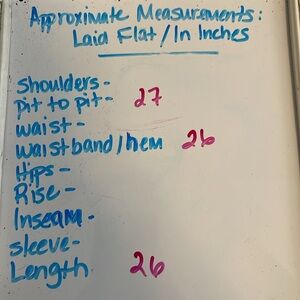 Approximate Measurements:
Laid Flat/In Inches
Shoulders-
pit to pit- 27
waist-
waistband/hem 26
Hips-
Rise-
Inseam-
sleeve-
Length 26